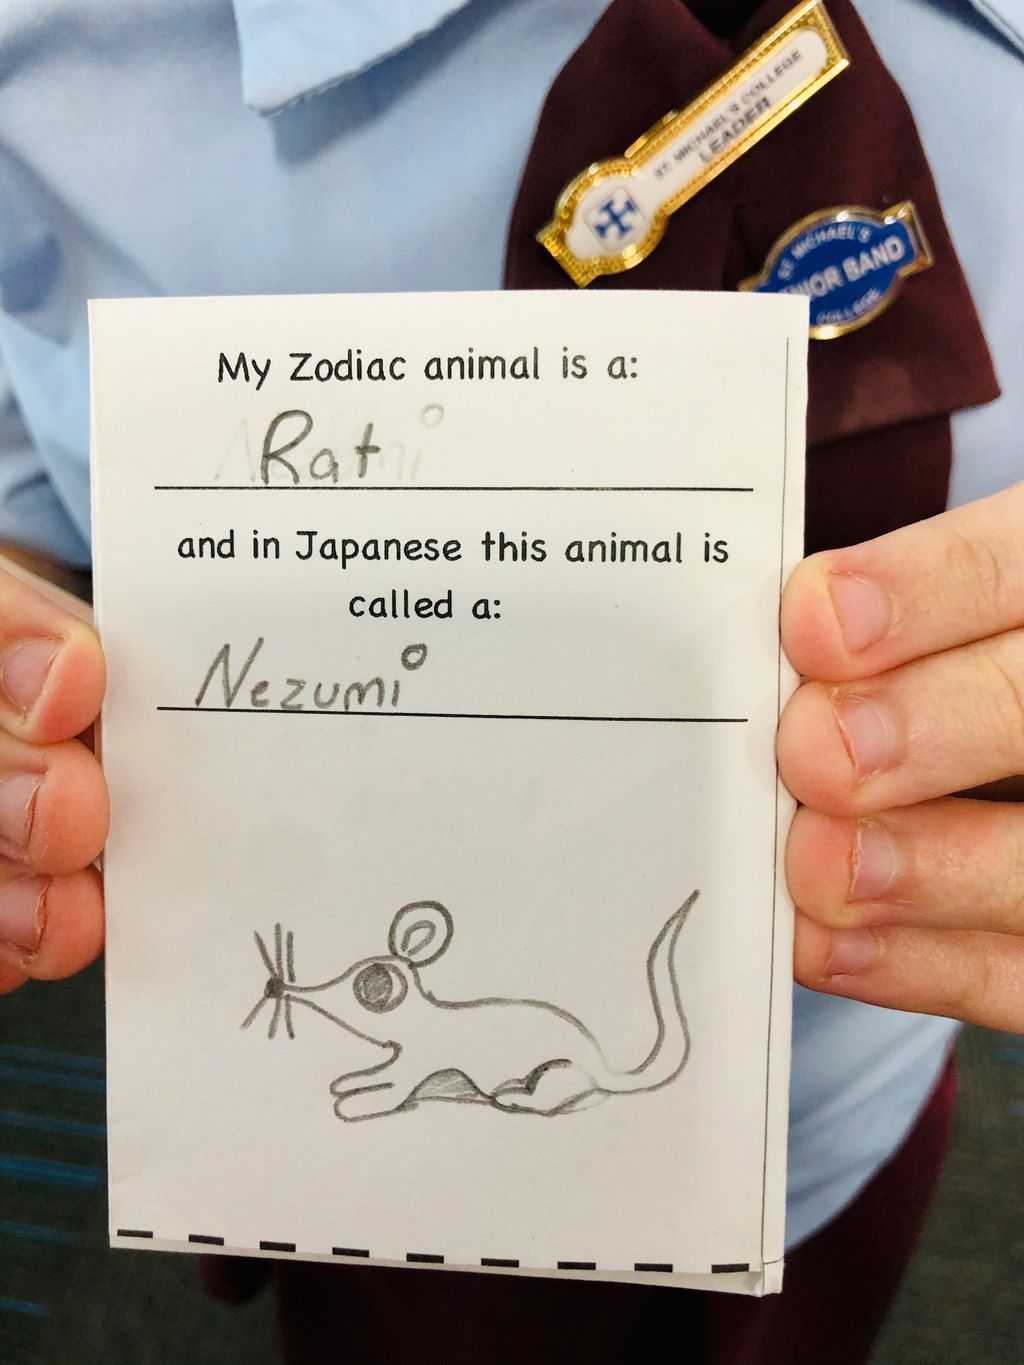 ST. MICHAEL'S COLLEGE
LEADER
ST MICHAEL'S
BAND
COLLEGE
My Zodiac animal is a:
Rat
and in Japanese this animal is
called a:
Nezumi